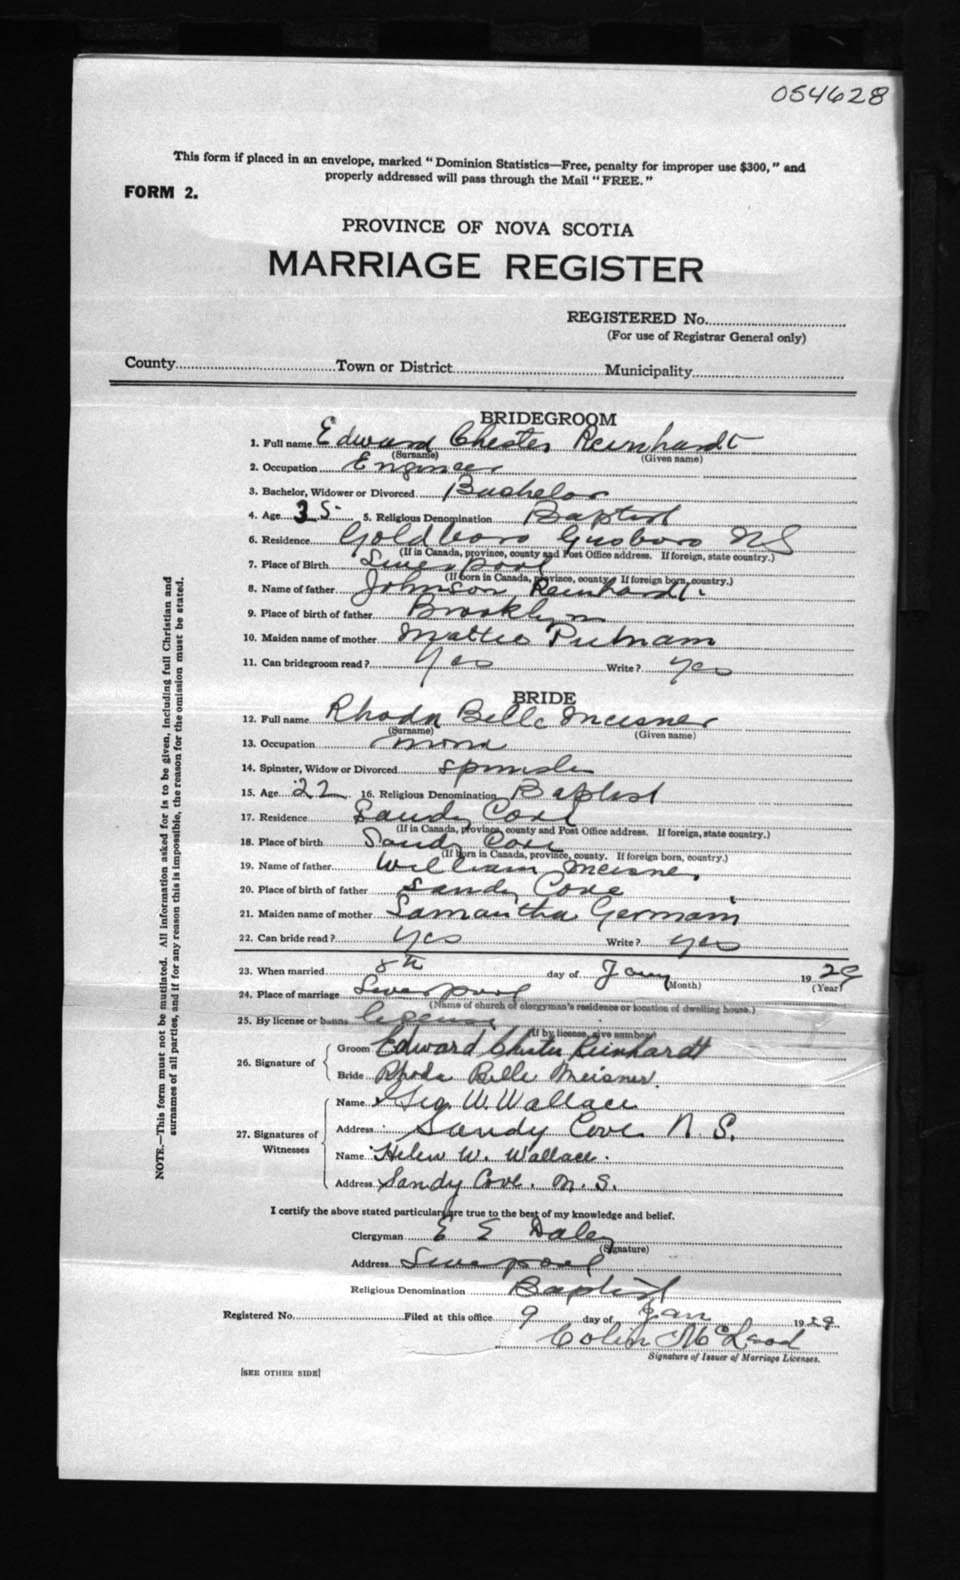 054628
This form if placed in an envelope, marked "Dominion Statistics—Free, penalty for improper use $300," and
properly addressed will pass through the Mail "FREE."
FORM 2.
PROVINCE OF NOVA SCOTIA
MARRIAGE REGISTER
REGISTERED No.
(For use of Registrar General only)
County Town or District Municipality
BRIDEGROOM
1. Full name Edward Chester Reinhardt
(Surname) (Given name)
2. Occupation Engineer
3. Bachelor, Widower or Divorced Bachelor
4. Age 35 5. Religious Denomination Baptist
6. Residence Goldboro Gusboro NS
(If in Canada, province, county and Post Office address. If foreign, state country.)
7. Place of Birth Liverpool
(If born in Canada, province, county. If foreign born, country.)
8. Name of father Johnson Reinhardt.
9. Place of birth of father Brooklyn
10. Maiden name of mother Mattie Putnam
11. Can bridegroom read? Yes Write? yes
BRIDE
12. Full name Rhoda Belle Meisner
(Surname) (Given name)
13. Occupation
14. Spinster, Widow or Divorced Spinster
15. Age 22 16. Religious Denomination Baptist
17. Residence Sandy Cove
(If in Canada, province, county and Post Office address. If foreign, state country.)
18. Place of birth Sandy Cove
(If born in Canada, province, county. If foreign born, country.)
19. Name of father William Meisner
20. Place of birth of father Sandy Cove
21. Maiden name of mother Samantha Germain
22. Can bride read? yes Write? yes
23. When married 8th day of Jany 1929
(Month) (Year)
24. Place of marriage Liverpool
(Name of church of clergyman's residence or location of dwelling house.)
25. By license or banns license
(If by license, give number)
26. Signature of Groom Edward Chester Reinhardt
Bride Rhoda Belle Meisner.
27. Signatures of Witnesses Name Geo. W. Wallace
Address Sandy Cove N. S.
Name Helen W. Wallace.
Address Sandy Cove. N. S.
I certify the above stated particulars are true to the best of my knowledge and belief.
Clergyman E E Daley
(Signature)
Address Liverpool
Religious Denomination Baptist
Registered No. Filed at this office 9 day of Jan 1929.
Colin McLeod
Signature of Issuer of Marriage Licenses.
[SEE OTHER SIDE]
NOTE.—This form must not be mutilated. All information asked for is to be given, including full Christian and
surnames of all parties, and if for any reason this is impossible, the reason for the omission must be stated.